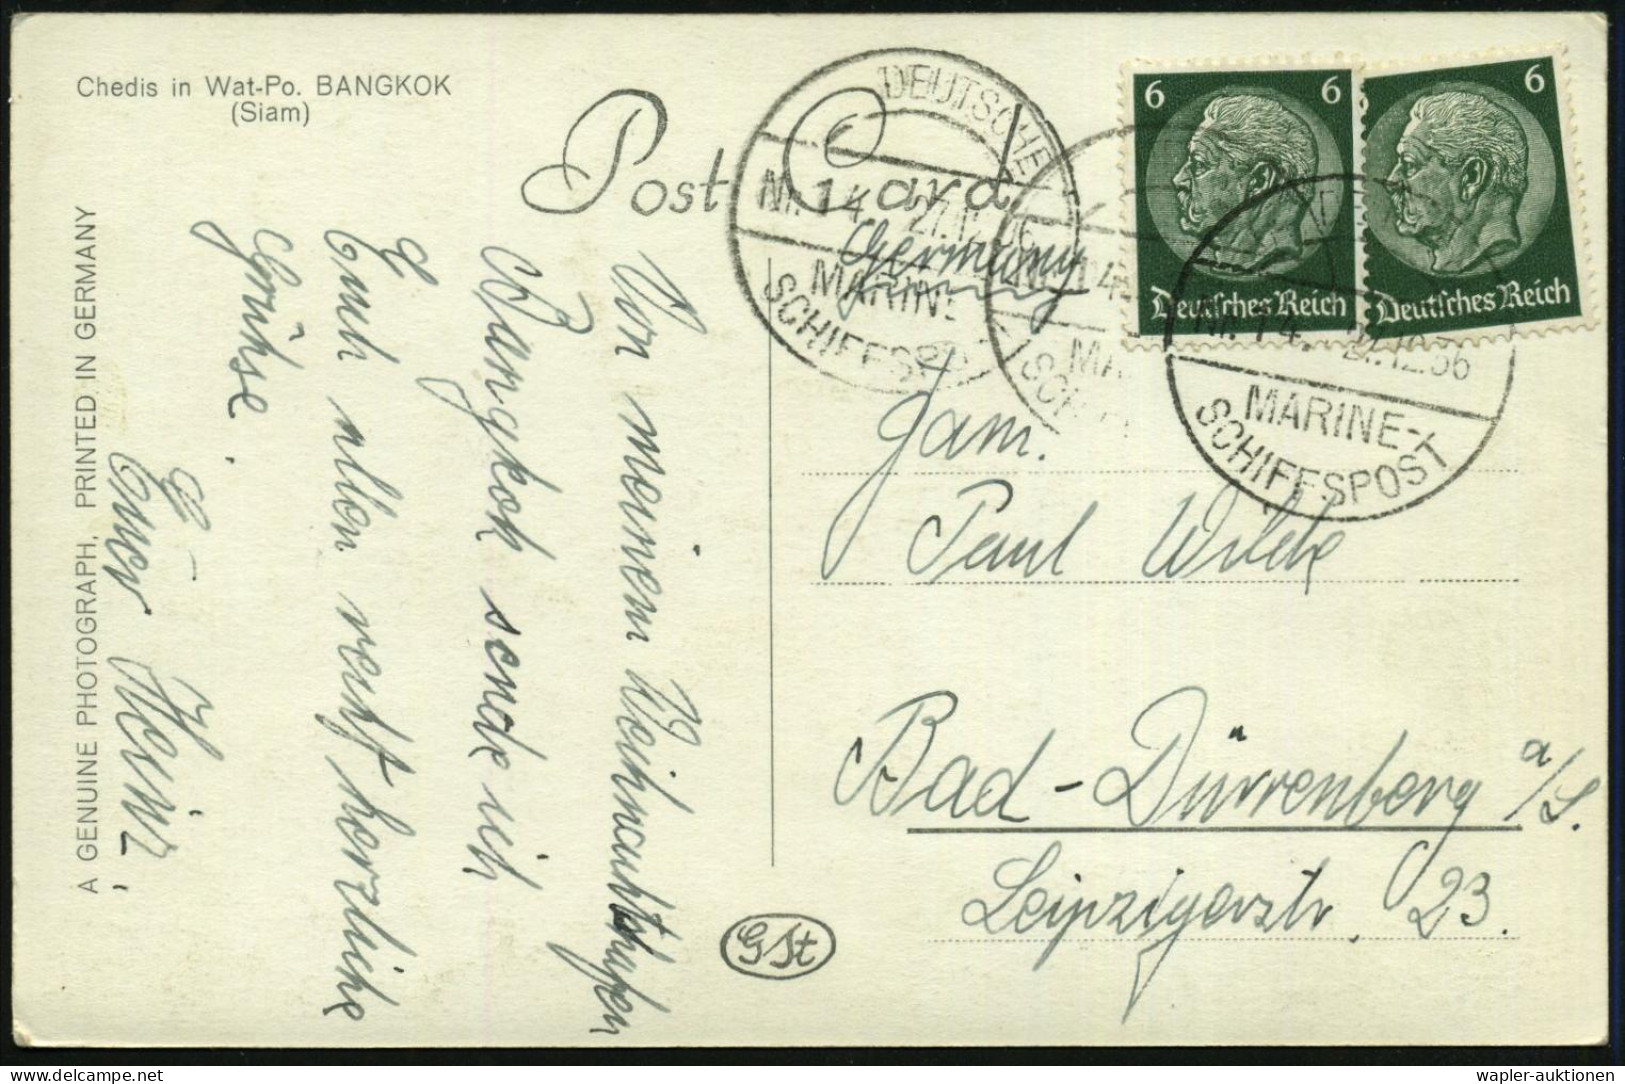 Chedis in Wat-Po. BANGKOK
(Siam)
Post Card
Germany
A GENUINE PHOTOGRAPH, PRINTED IN GERMANY
Von meinem Weihnachtshafen
Bangkok sende ich
Euch allen recht herzliche
Grüsse.
Euer Heinz
DEUTSCHE
Nr. 14
MARINE
SCHIFFSPO
6 6
Deutsches Reich
6
Deutsches Reich
Nr. 14. 27.12.36
MARINE-
SCHIFFSPOST
Fam.
Paul Wilde
Bad-Dürrenberg a/S.
Leipzigerstr. 23.
GSt
wapler-auktionen